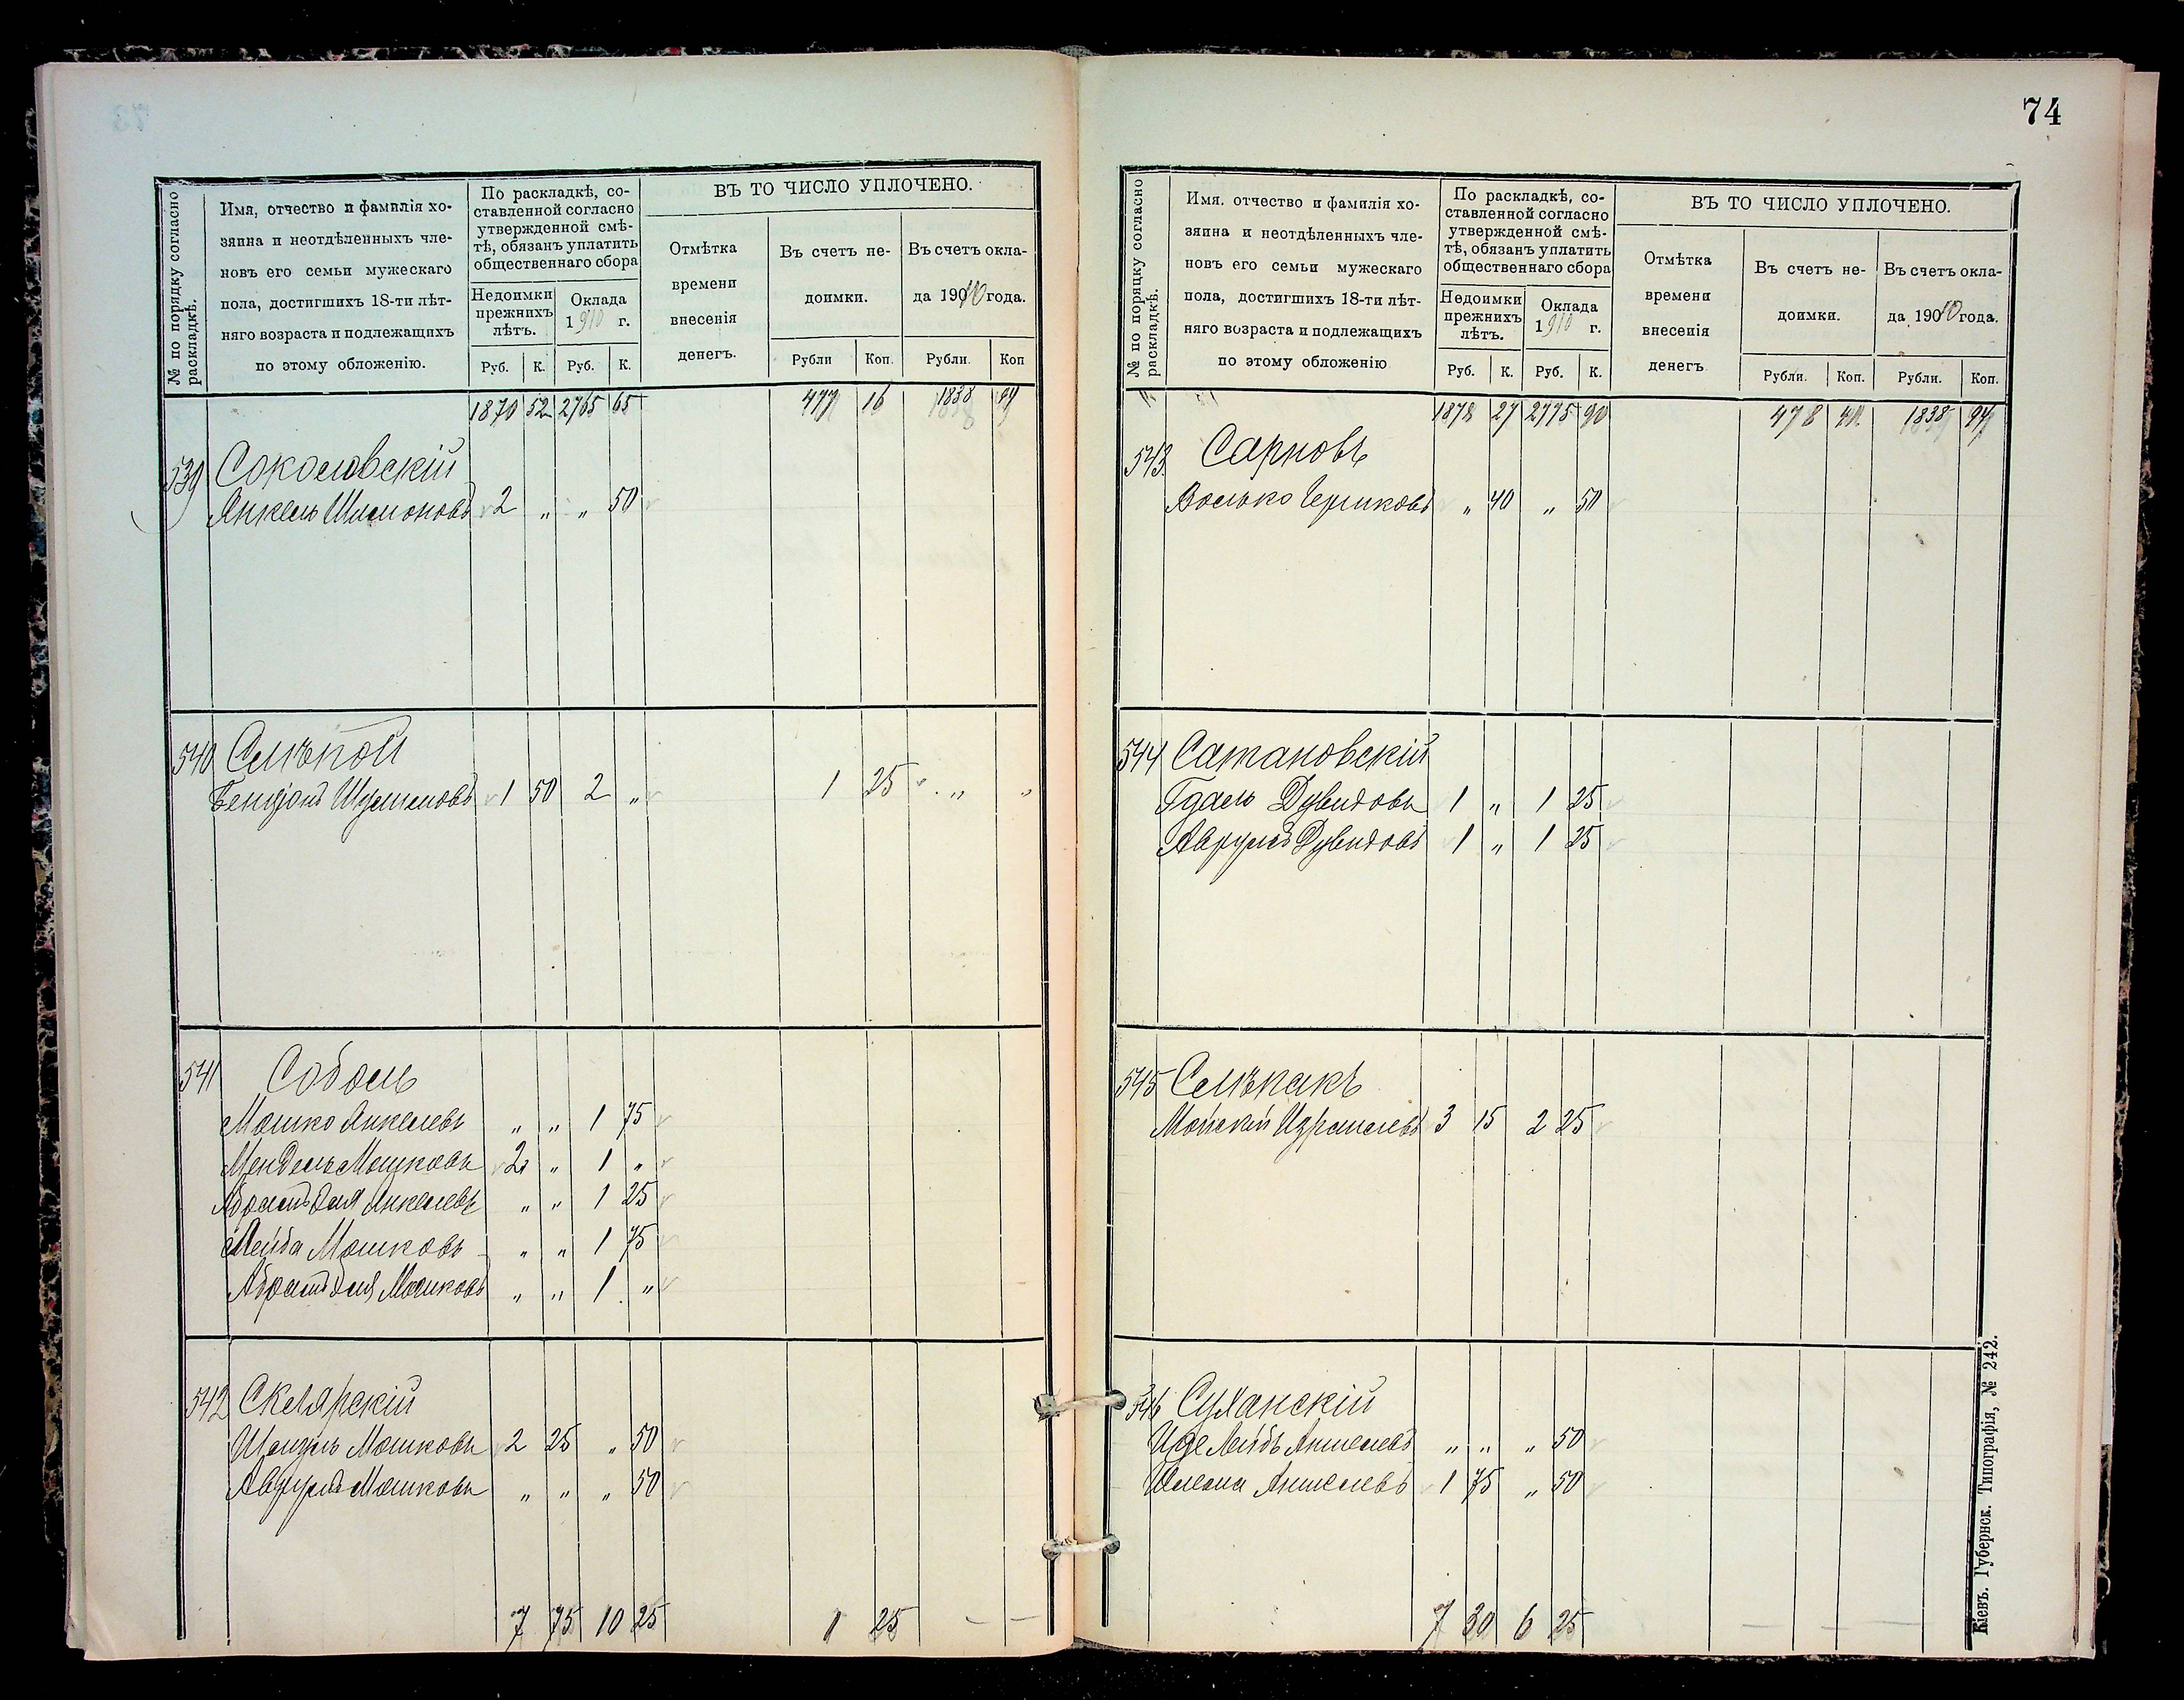 74
№ по порядку согласно раскладкѣ.
Имя, отчество и фамилія хо-
зяина и неотдѣленныхъ чле-
новъ его семьи мужескаго
пола, достигшихъ 18-ти лѣт-
няго возраста и подлежащихъ
по этому обложенію.
По раскладкѣ, со-
ставленной согласно
утвержденной смѣ-
тѣ, обязанъ уплатить
общественнаго сбора
Недоимки
прежнихъ
лѣтъ.
Оклада
1910 г.
Руб. К. Руб. К.
ВЪ ТО ЧИСЛО УПЛОЧЕНО.
Отмѣтка
времени
внесенія
денегъ.
Въ счетъ не-
доимки.
Въ счетъ окла-
да 1910 года.
Рубли Коп. Рубли. Коп
1870 52 2765 65 477 16 1838 94
539 Соколовскій
Янкель Шлемовъ 2 " " 50
540 Слѣпой
Бенціонъ 1 50 2 " 1 25 " "
541 Соболь
Мошко Янкелевъ " " 1 75
Мендель Мошковъ 2 " 1 "
Абрамъ Янкелевъ " " 1 25
Лейба Мошковъ " " 1 75
Абрамъ Мошковъ " " 1 "
542 Склярскій
Мошковъ 2 25 " 50
Аврумъ Мошковъ " " " 50
7 75 10 25 1 25 — —
№ по порядку согласно раскладкѣ.
Имя. отчество и фамилія хо-
зяина и неотдѣленныхъ чле-
новъ его семьи мужескаго
пола, достигшихъ 18-ти лѣт-
няго возраста и подлежащихъ
по этому обложенію
По раскладкѣ, со-
ставленной согласно
утвержденной смѣ-
тѣ, обязанъ уплатить
общественнаго сбора
Недоимки
прежнихъ
лѣтъ.
Оклада
1910 г.
Руб. К. Руб. К.
ВЪ ТО ЧИСЛО УПЛОЧЕНО.
Отмѣтка
времени
внесенія
денегъ
Въ счетъ не-
доимки.
Въ счетъ окла-
да 1910 года.
Рубли. Коп. Рубли. Коп.
1878 27 2775 90 478 41 1838 94
543 Сарновъ
Волько " 40 " 50
544 Сатановскій
Гдаль Дувидовъ 1 " 1 25
Аврумъ Дувидовъ 1 " 1 25
545 Слѣпакъ
Мойсей Израилевъ 3 15 2 25
546 Суханскій
Лейбъ Аншелевъ " " " 50
Аншелевъ 1 75 " 50
7 30 6 25 — — —
Кіевъ. Губернск. Типографія, № 242.